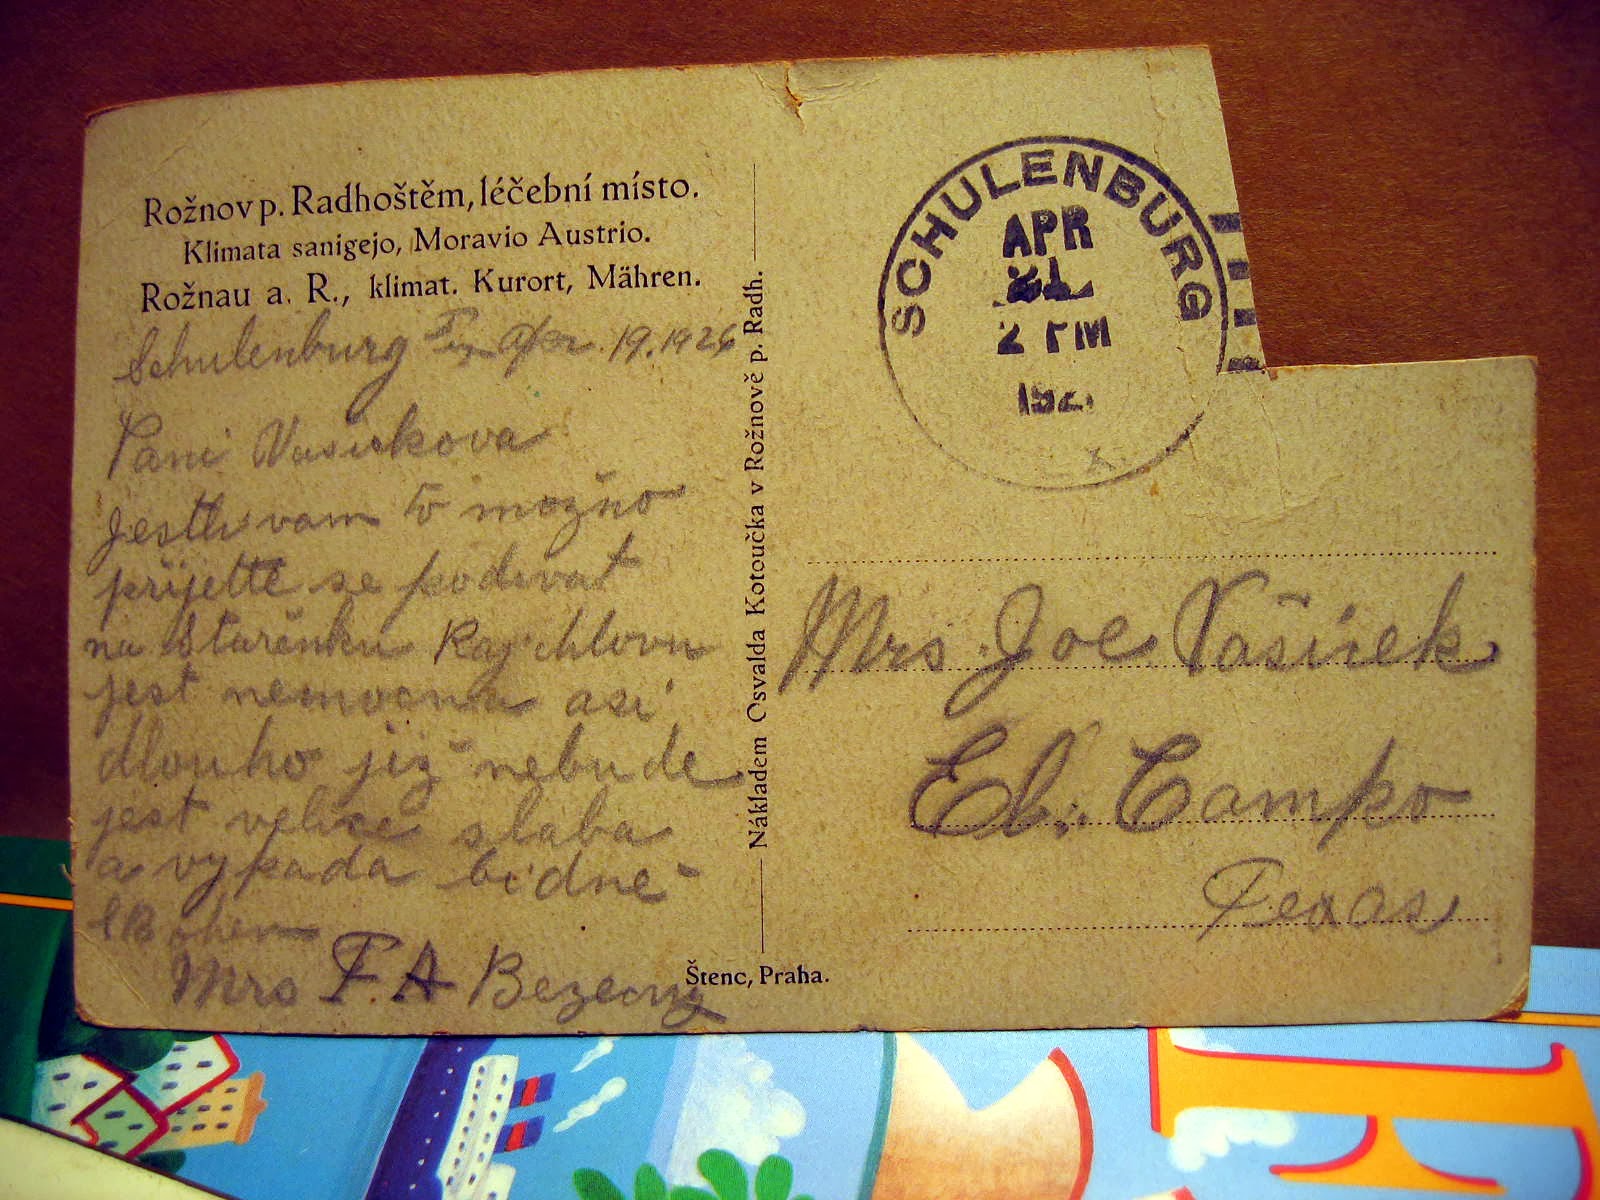 Rožnov p. Radhoštěm, léčební místo.
Klimata sanigejo, Moravio Austrio.
Rožnau a. R., klimat. Kurort, Mähren.
Schulenburg Tex Apr. 19. 1926
Pani Vasickova
Jestli vam to možno
prijette se podivat
na Starěnku Raj
jest nemocna asi
dlouho již nebude
jest velice slaba
a vypada bidně
Mrs F. A Bezecny
Nákladem Osvalda Kotoučka v Rožnově p. Radh.
Štenc, Praha.
SCHULENBURG
APR
21
2 PM
192
Mrs. Joe Vašíček
El. Campo
Texas